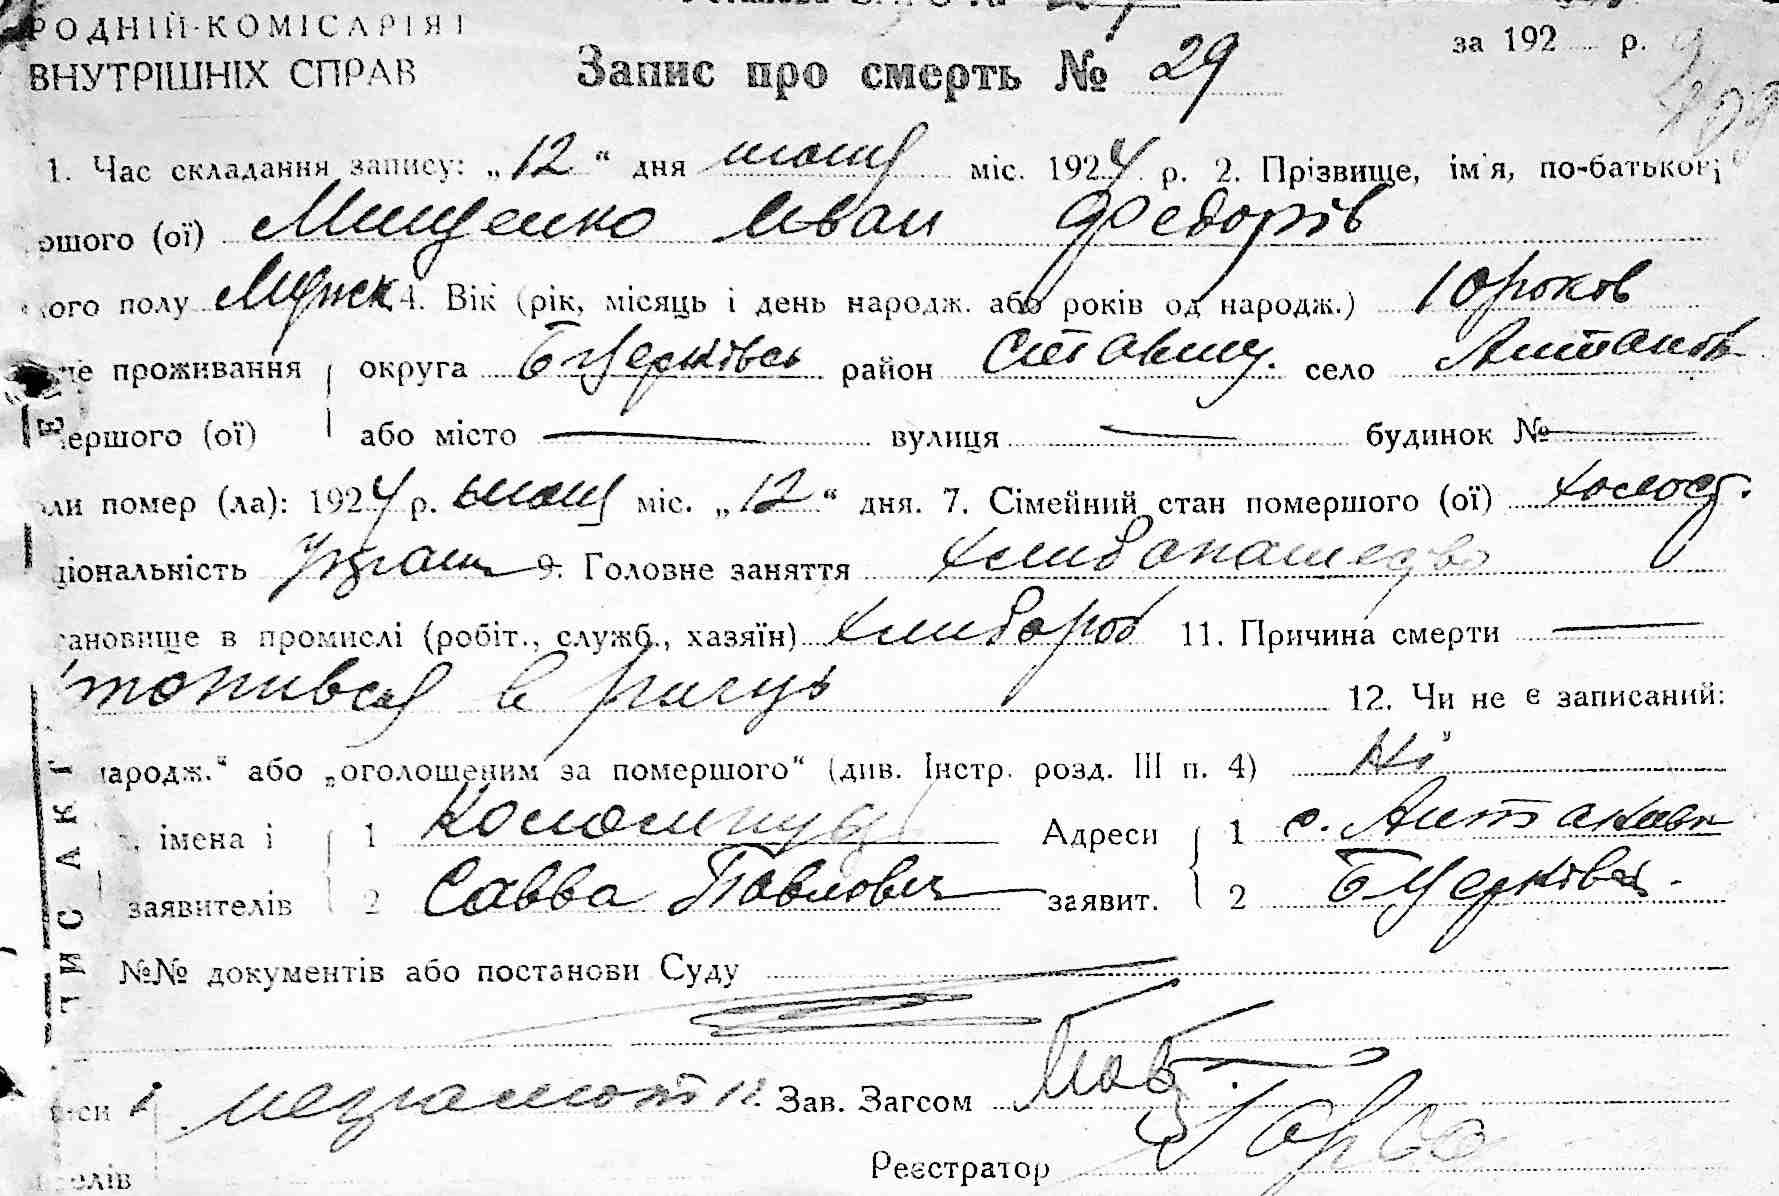 РОДНІЙ КОМІСАРІЯТ
ВНУТРІШНІХ СПРАВ
Запис про смерть № 29
за 192 р.
1. Час складання запису: „12“ дня июня міс. 1924 р. 2. Прізвище, ім'я, по-батькові
ршого (ої) Мищенко Иван Федорів
кого полу Мужск 4. Вік (рік, місяць і день народж. або років од народж.) 10 роков
це проживання округа БЦерківсь район Ставищ. село Антонов
мершого (ої) або місто — вулиця — будинок № —
ли помер (ла): 1924 р. июня міс. „12“ дня. 7. Сімейний стан помершого (ої) холост.
ціональність Украин 9. Головне заняття хлибопашедво
тановище в промислі (робіт., служб., хазяїн) хлибороб 11. Причина смерти —
топився в ричць 12. Чи не є записаний:
народж.“ або „оголошеним за помершого“ (див. Інстр. розд. III п. 4) Ні
, імена і 1 Адреси 1 с. Антоновк
заявителів 2 Савва Павлович заявит. 2 БЦерківсь.
№№ документів або постанови Суду
си і неграмот 12. Зав. Загсом
елів Реєстратор
ПИСАКГ